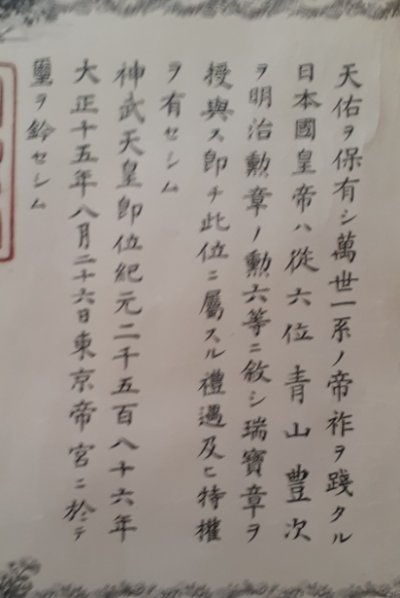 天佑ヲ保有シ萬世一系ノ帝祚ヲ踐タル
日本國皇帝ハ從六位青山豊次
ヲ明治勲章ノ勲六等ニ敘シ瑞寶章ヲ
授與ス即チ此位ニ屬スル禮遇及ヒ特權
ヲ有セシム
神武天皇即位紀元二千五百八十六年
大正十五年八月二十六日東京帝宮ニ於テ
璽ヲ鈐セシム